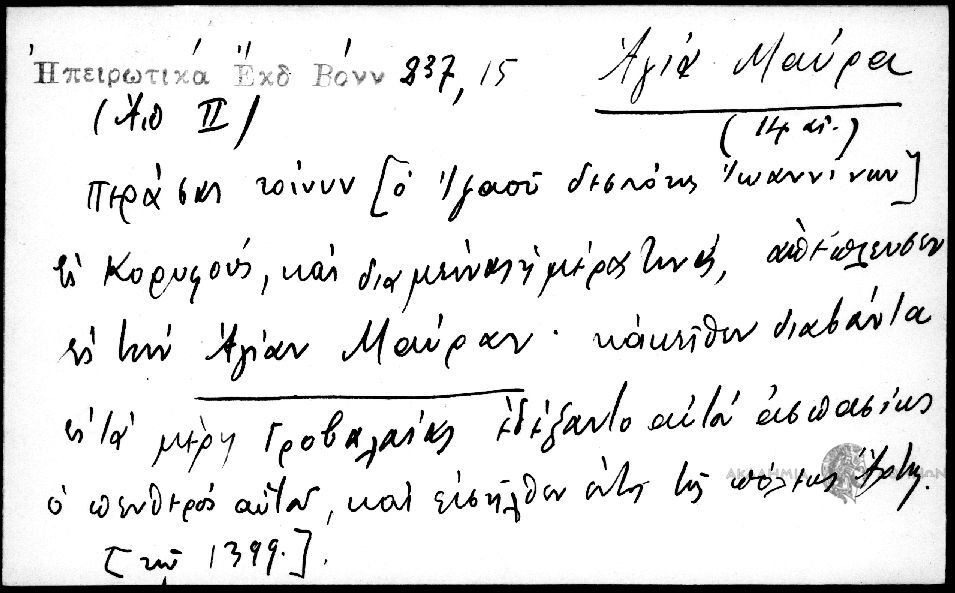 Ἠπειρωτικά Ἔκδ Βόνν 237, 15 Ἁγία Μαύρα
(Ἀπ II) (14 αἰ.)
περάσας τοίνυν [ὁ Ἠσαοῦ δεσπότης Ἰωαννίνων]
εἰς Κορυφούς, καὶ διαμείνας ἡμέρας τινάς, ἀπέπλευσεν
εἰς τὴν Ἁγίαν Μαύραν · κἀκεῖθεν διαβάντα
εἰς τὰ μέρη Γροβαλαίας ἐδέξαντο αὐτὸν ἀσπασίως
ὁ πενθερός αὐτοῦ, καὶ εἰσῆλθεν ἐντὸς τῆς πόλεως Ἄρτης.
[τῷ 1399.].
ΑΚΑΔΗΜΙΑ ΑΘΗΝΩΝ